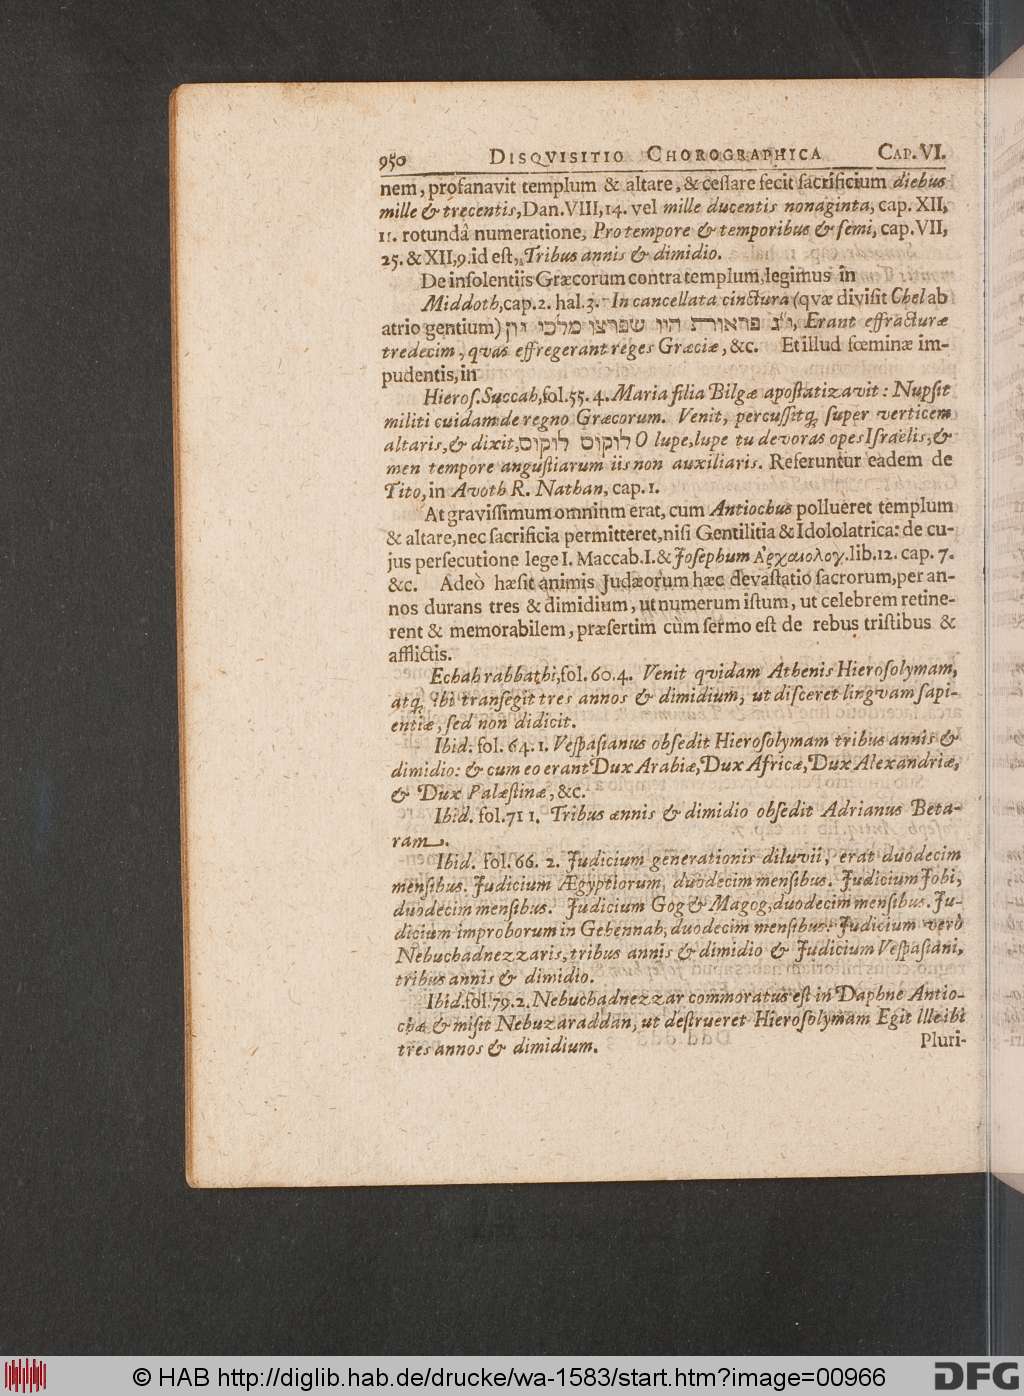 950 DISQVISITIO CHOROGRAPHICA CAP. VI.
nem, profanavit templum & altare, & ceſſare fecit ſacrificium diebus
mille & trecentis, Dan. VIII, 14. vel mille ducentis nonaginta, cap. XII,
11. rotundâ numeratione, Pro tempore & temporibus & ſemi, cap. VII,
25. & XII, 9. id eſt, Tribus annis & dimidio.
De inſolentiis Græcorum contra templum, legimus in
Middoth, cap. 2. hal. 3. In cancellata cinctura (quæ diviſit Chel ab
atrio gentium) י״ג פראורת היו שפרצו מלכי יון, Erant effracturæ
tredecim, qvas effregerant reges Græciæ, &c. Et illud fœminæ im-
pudentis, in
Hieroſ. Succah, fol. 55. 4. Maria filia Bilgæ apoſtatizavit: Nupſit
militi cuidam de regno Græcorum. Venit, percuſſitq; ſuper verticem
altaris, & dixit, לוקוס לוקוס O lupe, lupe tu devoras opes Iſraelis, &
men tempore anguſtiarum iis non auxiliaris. Referuntur eadem de
Tito, in Avoth R. Nathan, cap. 1.
At graviſſimum omnium erat, cum Antiochus pollueret templum
& altare, nec ſacrificia permitteret, niſi Gentilitia & Idololatrica: de cu-
jus perſecutione lege I. Maccab. I. & Joſephum Ἀρχαιολογ. lib. 12. cap. 7.
&c. Adeò hæſit animis Judæorum hæc devaſtatio ſacrorum, per an-
nos durans tres & dimidium, ut numerum iſtum, ut celebrem retine-
rent & memorabilem, præſertim cùm ſermo eſt de rebus triſtibus &
afflictis.
Echah rabbathi, fol. 60. 4. Venit qvidam Athenis Hieroſolymam,
atq; ibi tranſegit tres annos & dimidium, ut diſceret lingvam ſapi-
entiæ, ſed non didicit.
Ibid. fol. 64. 1. Veſpaſianus obſedit Hieroſolymam tribus annis &
dimidio: & cum eo erant Dux Arabiæ, Dux Africæ, Dux Alexandriæ,
& Dux Palæſtinæ, &c.
Ibid. fol. 71 1. Tribus annis & dimidio obſedit Adrianus Beta-
ram.
Ibid. fol. 66. 2. Judicium generationis diluvii, erat duodecim
menſibus. Judicium Ægyptiorum, duodecim menſibus. Judicium Jobi,
duodecim menſibus. Judicium Gog & Magog, duodecim menſibus. Ju-
dicium improborum in Gehennah, duodecim menſibus. Judicium verò
Nebuchadnezzaris, tribus annis & dimidio & Judicium Veſpaſiani,
tribus annis & dimidio.
Ibid. fol. 79. 2. Nebuchadnezzar commoratus eſt in Daphne Antio-
chæ & miſit Nebuzaraddan, ut deſtrueret Hieroſolymam Egit Ille ibi
tres annos & dimidium.
Pluri-
© HAB http://diglib.hab.de/drucke/wa-1583/start.htm?image=00966
DFG